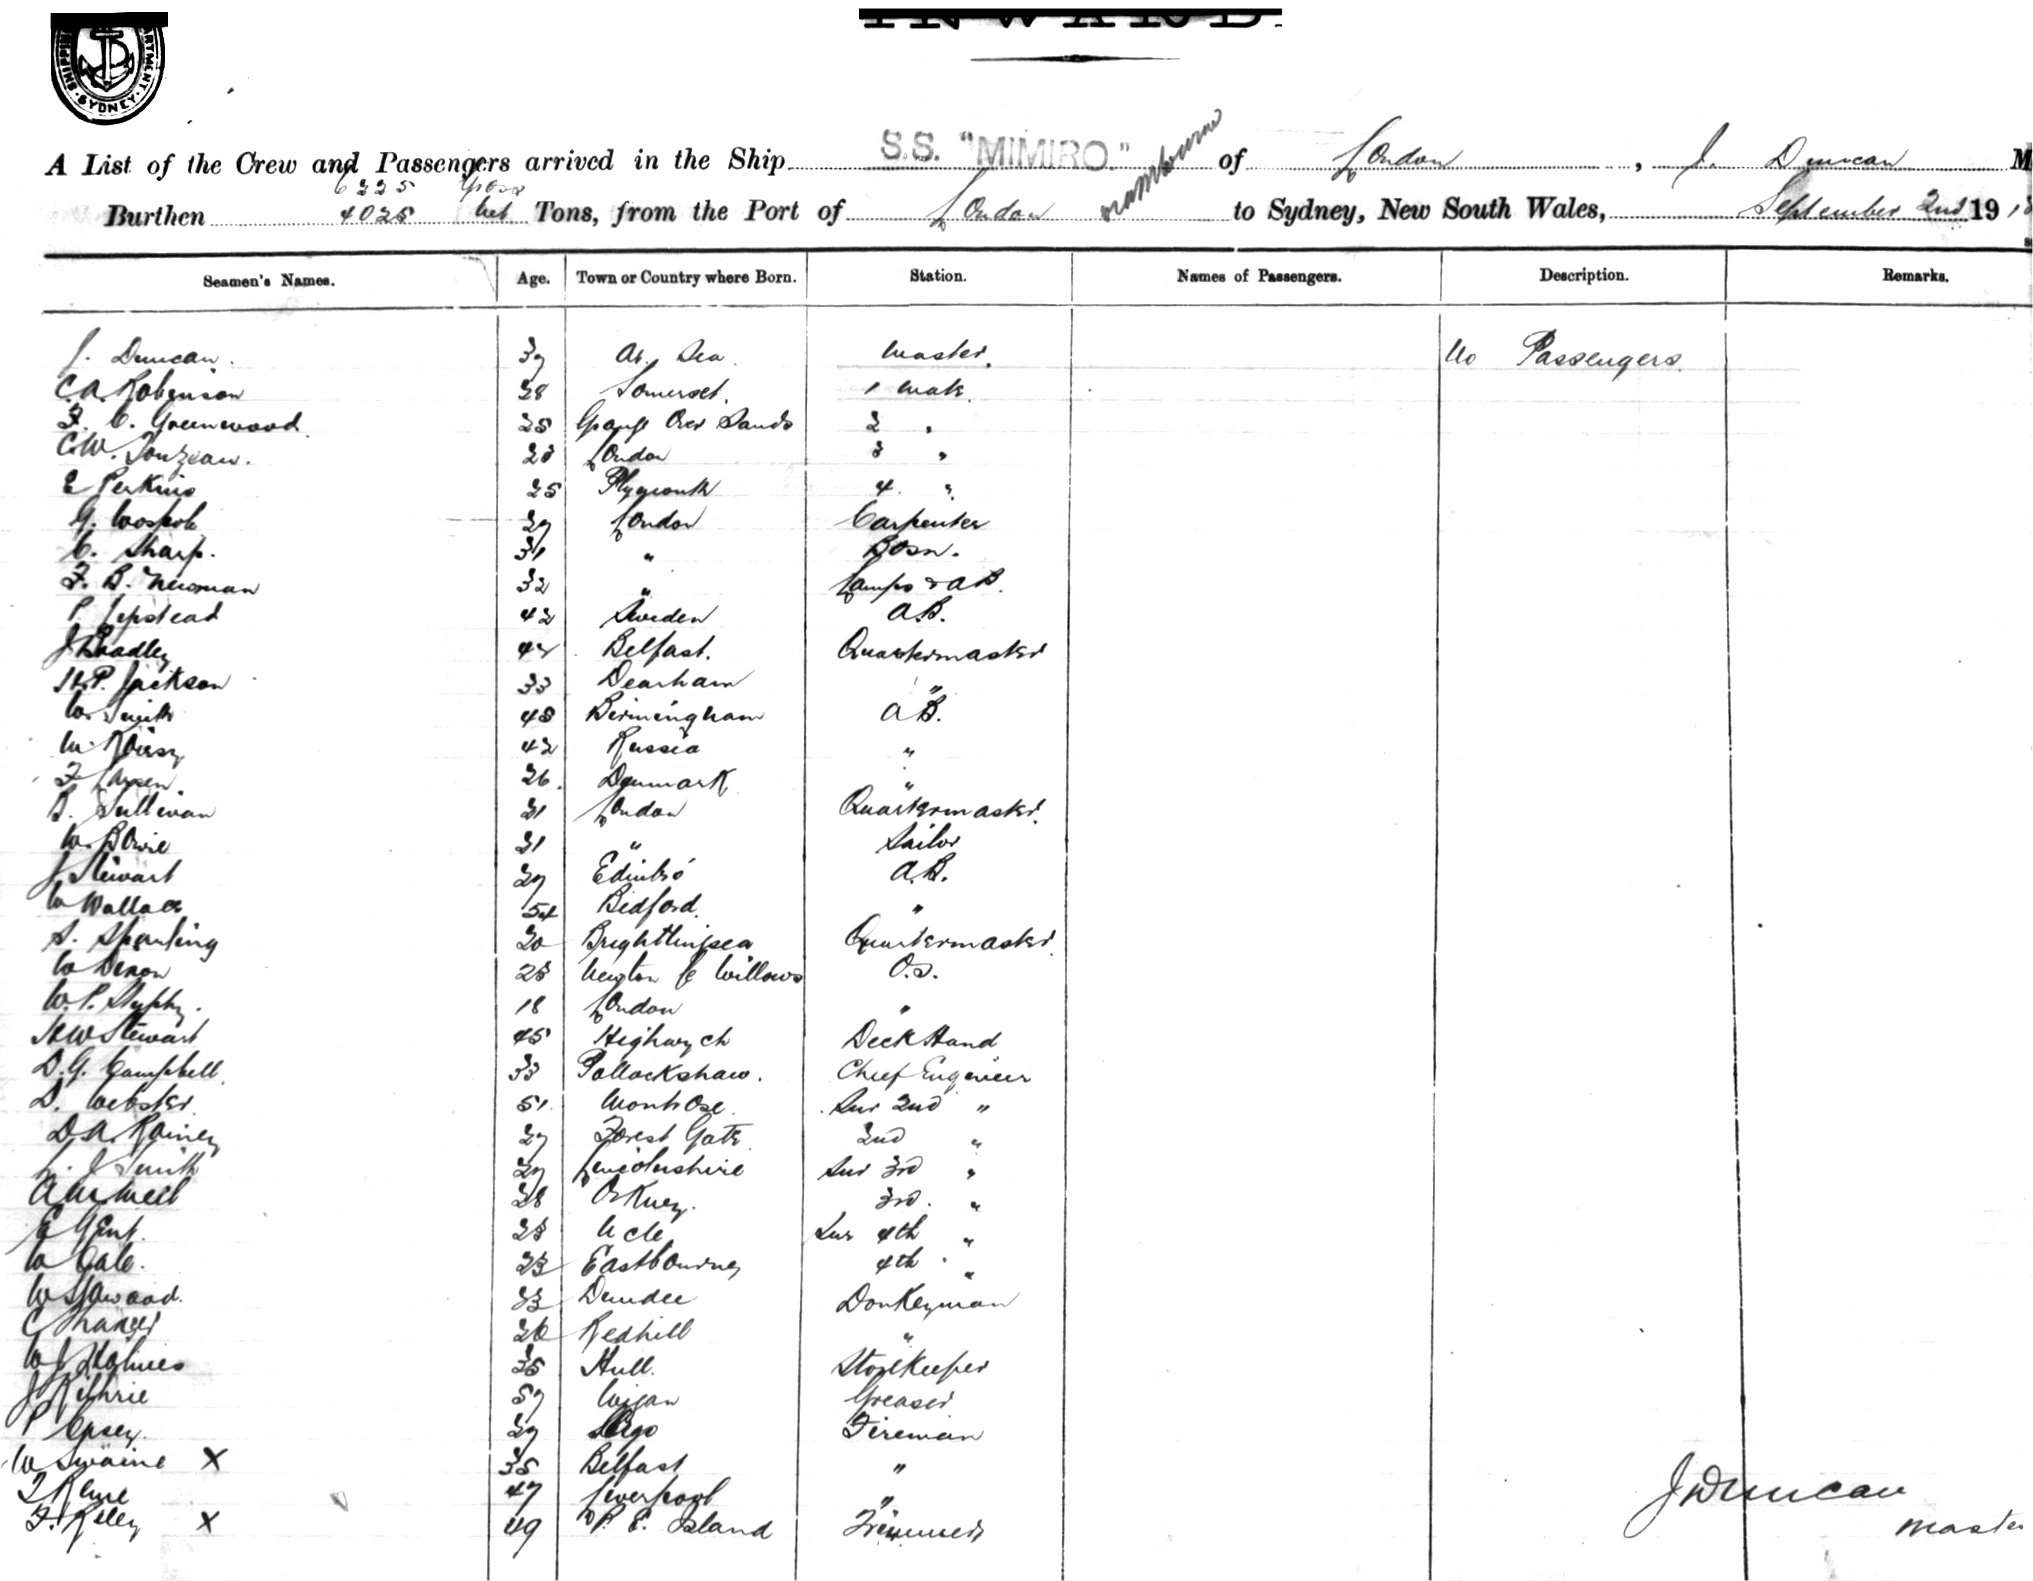 SHIPPING DEPARTMENT SYDNEY
INWARD
A List of the Crew and Passengers arrived in the Ship S.S. "MIMIRO." of London, J. Duncan M
6225 Gross
Burthen 4025 Net Tons, from the Port of London to Sydney, New South Wales, September 2nd 191
Seamen's Names. Age. Town or Country where Born. Station. Names of Passengers. Description. Remarks.
J. Duncan. 37 At Sea Master. No Passengers.
C.A. Robinson 28 Somerset. 1 Mate
F. C. Greenwood. 25 Grange Over Sands 2 "
C.W. 23 London 3 "
E Perkins 25 Plymouth 4 "
G. 37 London Carpenter
C. Sharp. 31 " Bosn.
F. B. Newman 32 " Lamps & AB.
P. Jepstead 42 Sweden A.B.
J Bradley 42 Belfast. Quartermaster
H.P. Jackson 33 Dearham "
W. Smith 48 Birmingham AB.
M. 42 Russia "
F Larsen 26. Denmark "
D. Sullivan 21 London Quartermaster.
W. Bowie 21 " Sailor
J Stewart 27 Edinbro' A.B.
W Wallace 54 Bedford. "
S. Sparling 30 Brightlingsea Quartermaster.
W Dixon 23 Newton le Willows O.S.
W. P. 18 London "
H W Stewart 45 Highwych Deck Hand
D. G. Campbell. 33 Pollockshaw. Chief Engineer
D. Webster. 51 Montrose. Snr 2nd "
D.A. Rainey 27 Forest Gate 2nd "
L. J Smith 27 Lincolnshire Snr 3rd "
A McNeil 28 Orkney. 3rd. "
E Gent. 23 Acle Snr 4th "
W Cale. 23 Eastbourne 4th "
W S Gawood. 33 Dundee Donkeyman
C 26 Redhill "
W J Holmes 35 Hull. Storekeeper
J Guthrie 57 Wigan Greaser
P 39 Fireman
W Swaine X 35 Belfast "
T 47 Liverpool "
F. Riley X 49 P. E. Island Trimmer
J Duncan
Master